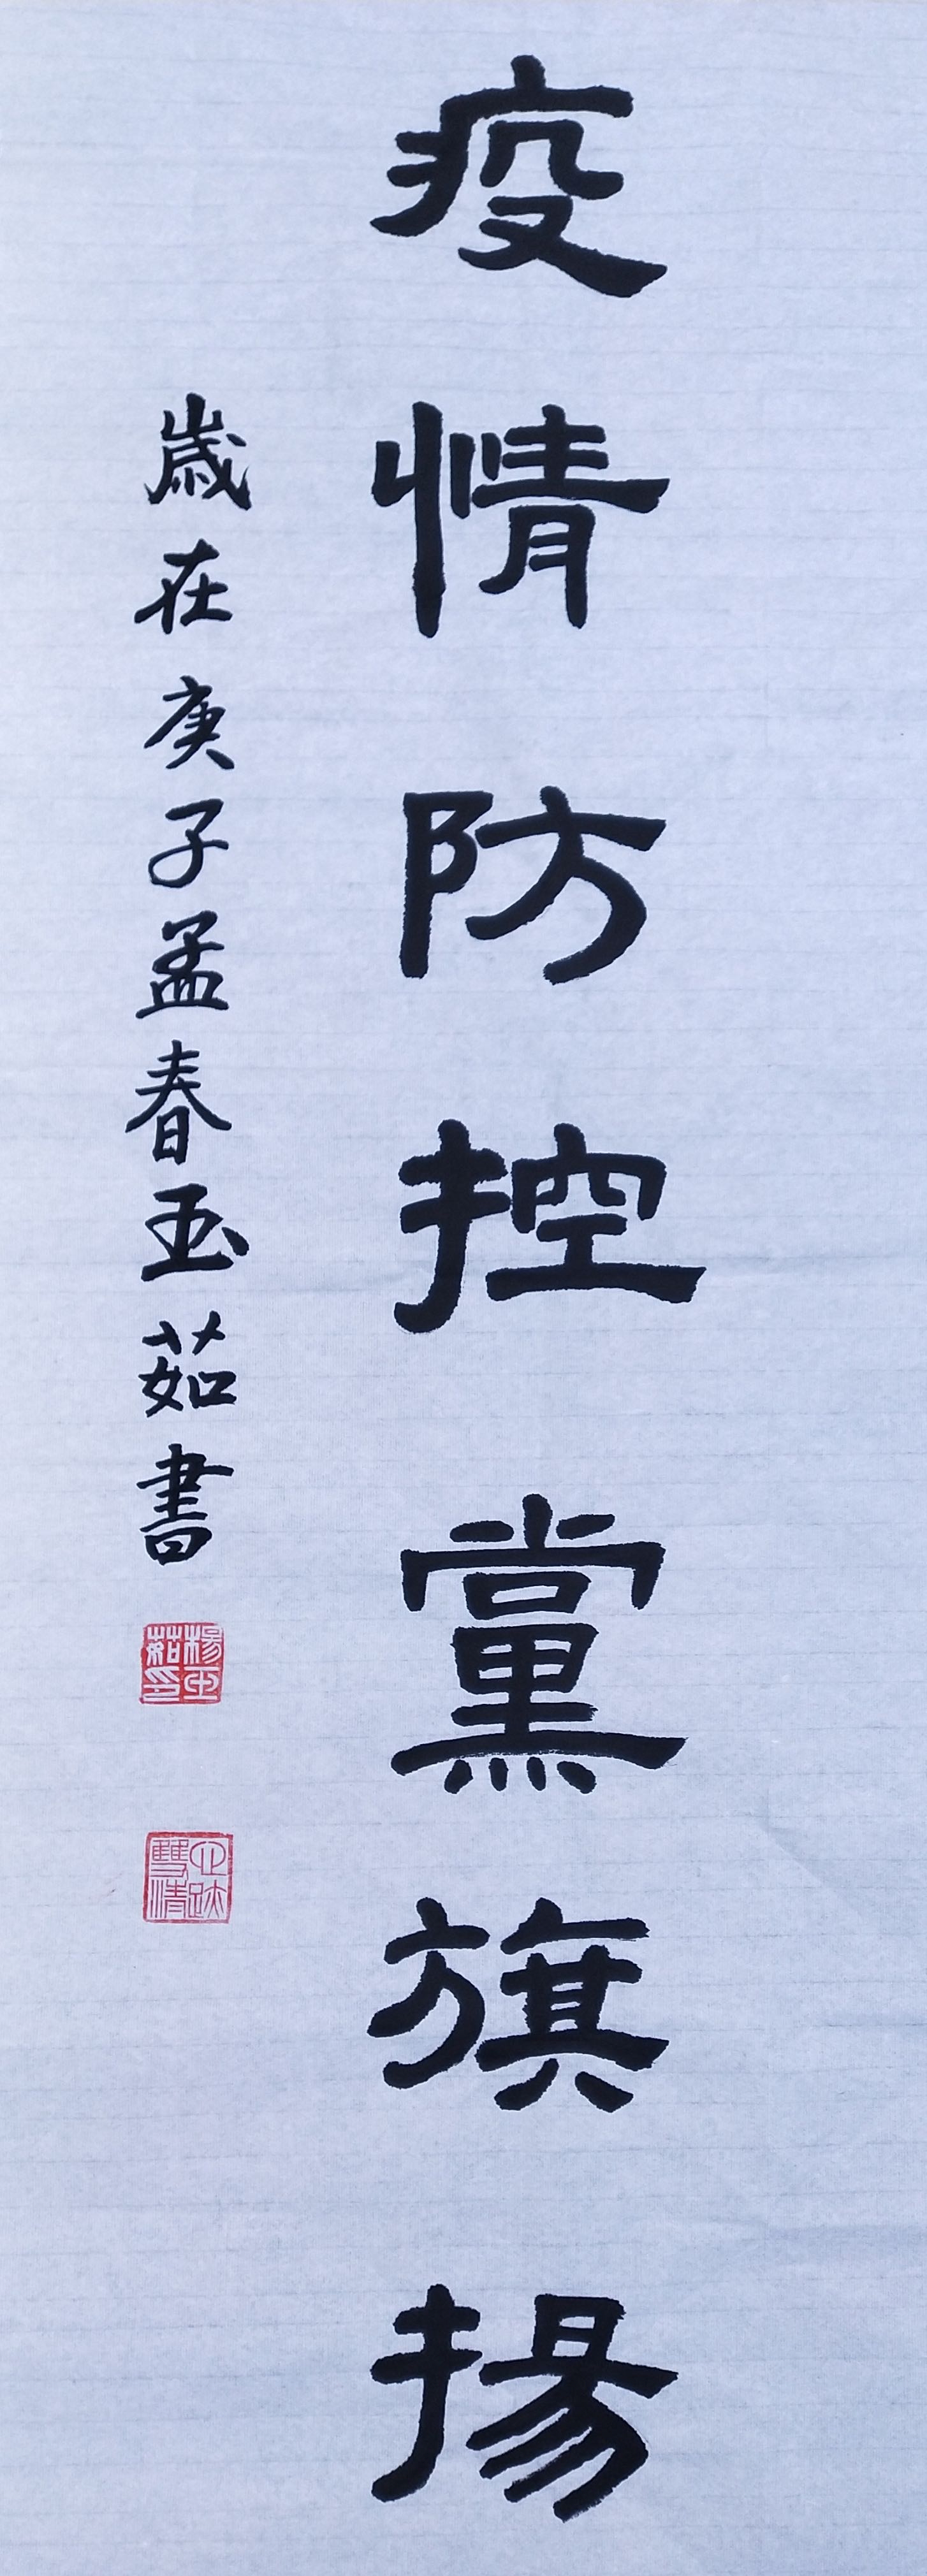 疫情防控黨旗揚
歲在庚子孟春玉茹書
楊玉茹印